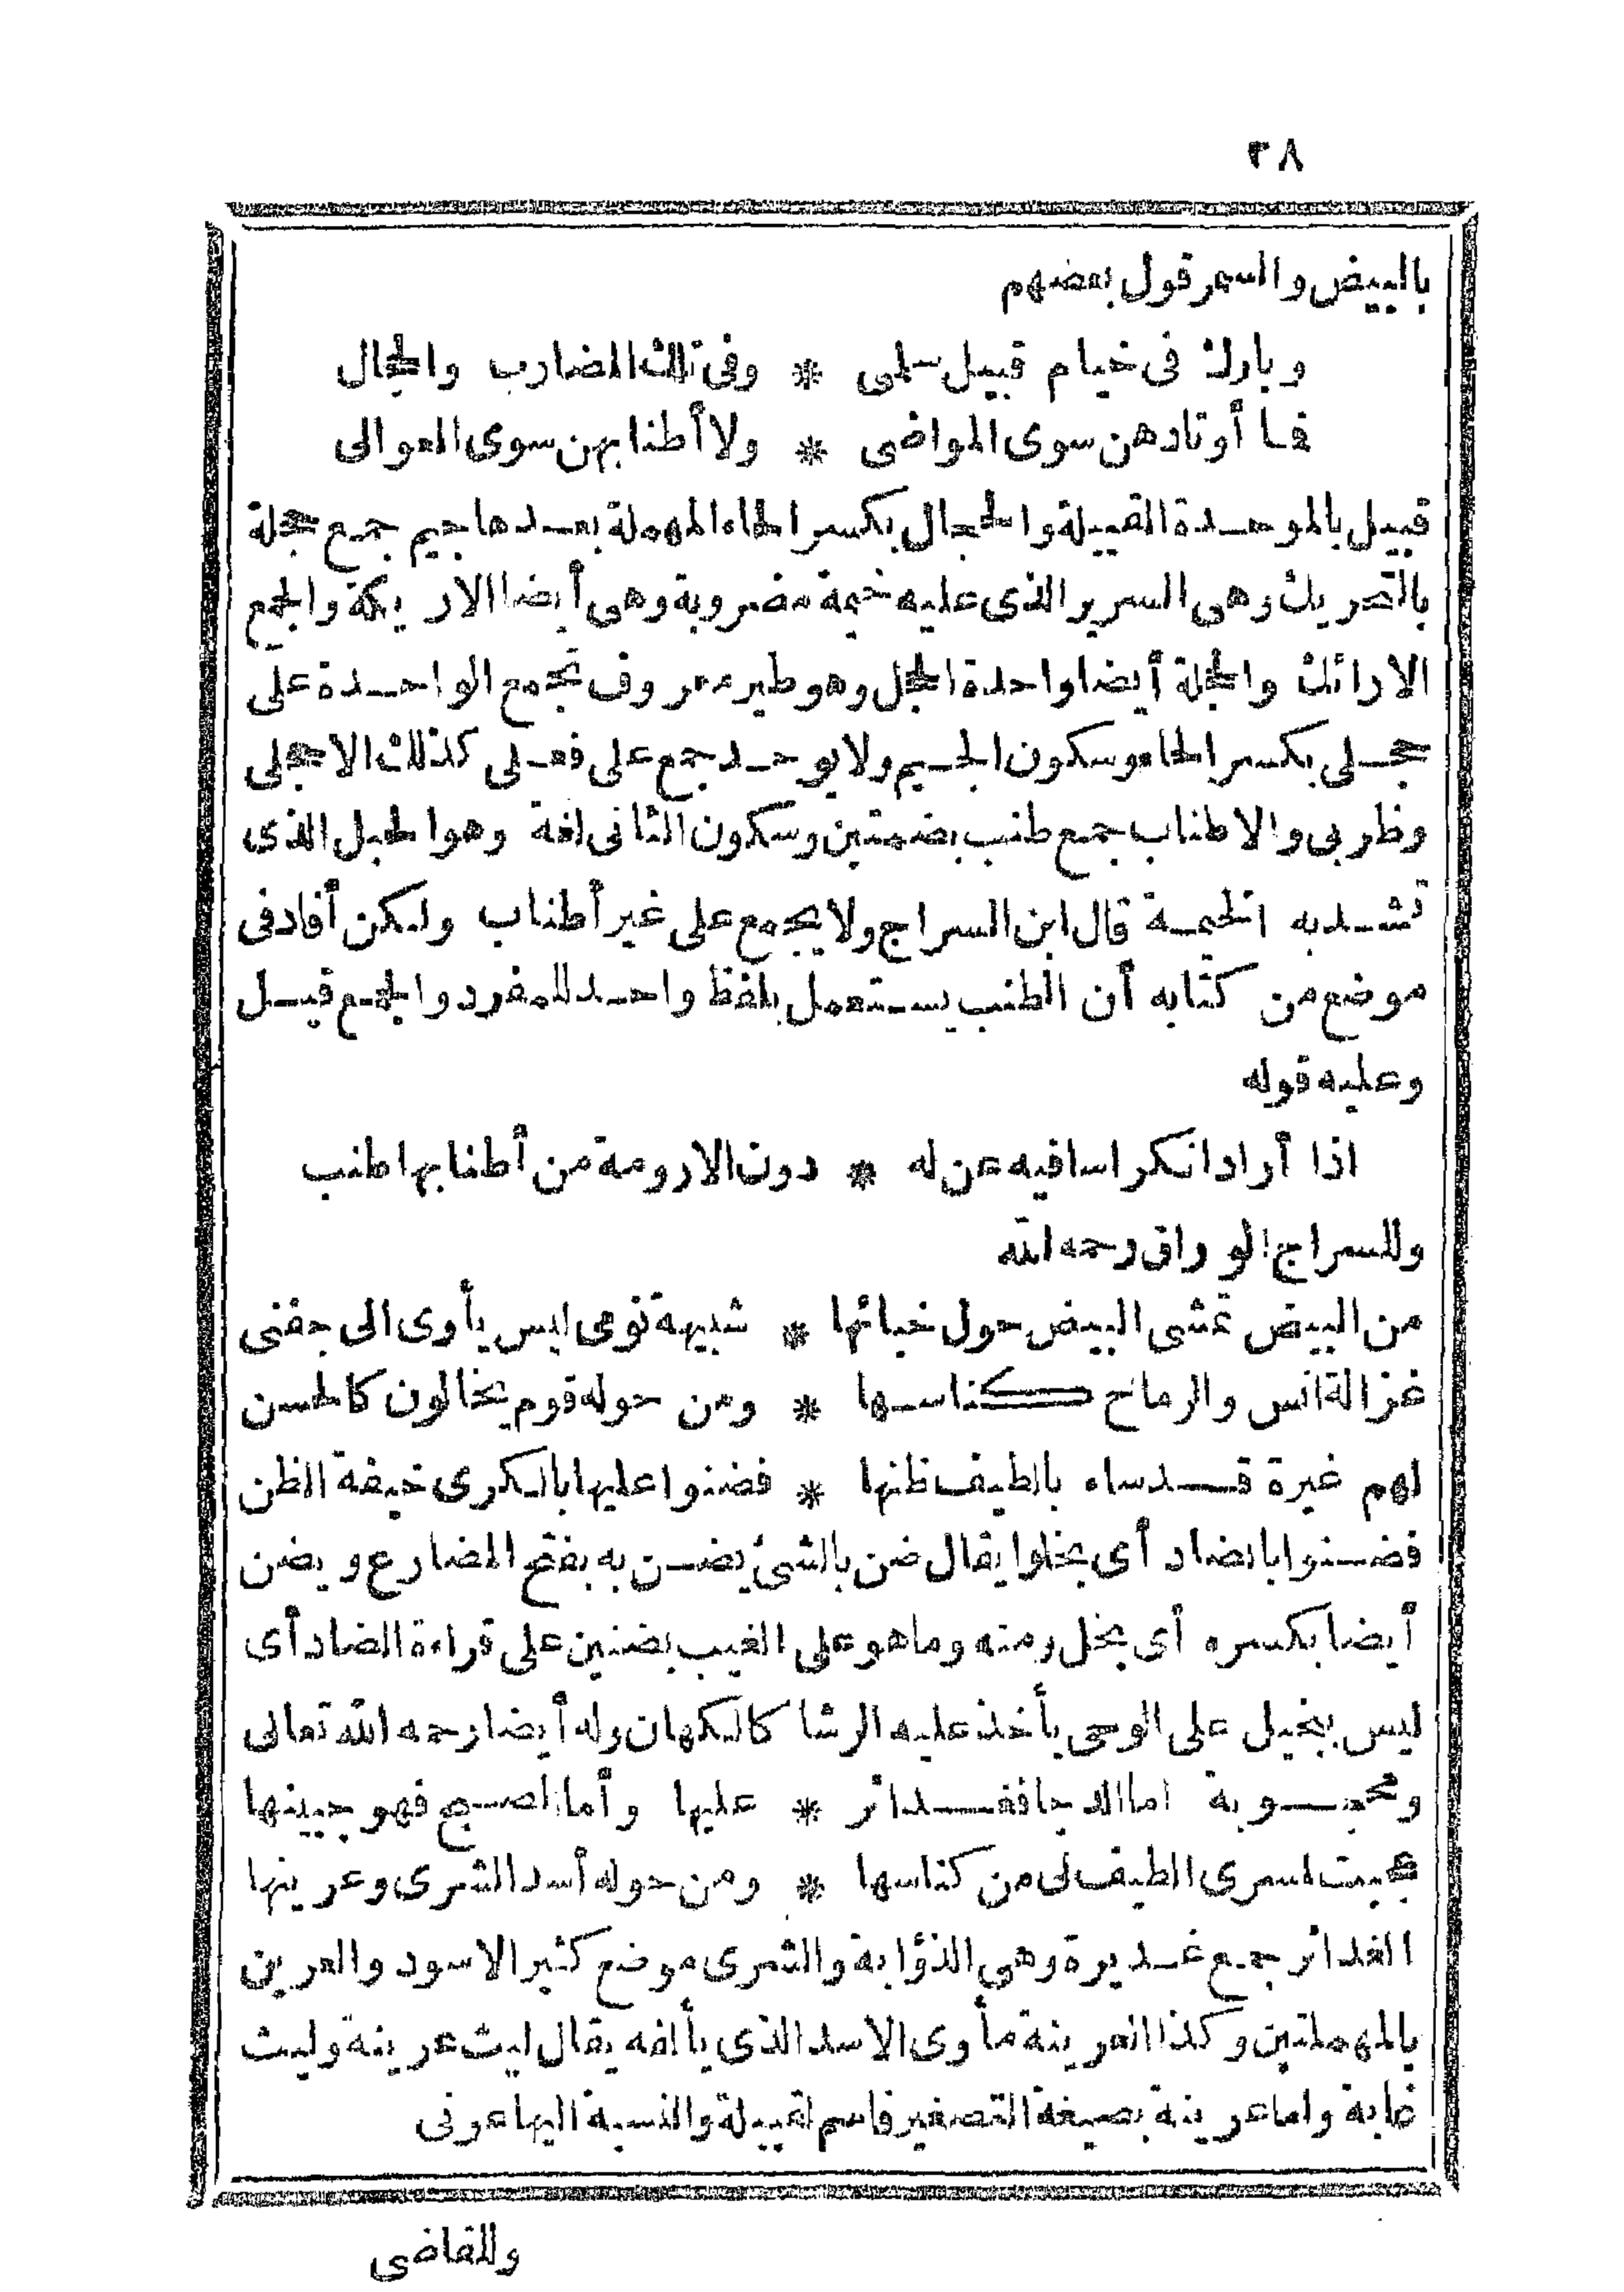 ٣٨
بالبيض والسمر قول بعضهم
وبارك فى خيام قبيل سلمى * وفى تلك المضارب والحجال
فما أوتادهن سوى المواضى * ولا أطنابهن سوى العوالى
قبيل بالموحدة القبيلة والحجال بكسر الحاء المهملة بعدها جيم جمع حجلة
بالتحريك وهى السرير الذى عليه خيمة مضروبة وهى أيضا الاريكة والجمع
الارائك والحجلة أيضا واحدة الحجل وهو طير معروف تجمع الواحدة على
حجلى بكسر الحاء وسكون الجيم ولا يوجد جمع على فعلى كذلك الا حجلى
وظربى والاطناب جمع طنب بضمتين وسكون الثانى لغة وهو الحبل الذى
تشد به الخيمة قال ابن السراج ولا يجمع على غير أطناب ولكن أفاد فى
موضع من كتابه أن الطنب يستعمل بلفظ واحد للمفرد والجمع قيل
وعليه قوله
اذا أراد انكراسا فيه عن له * دون الارومة من أطنابها طنب
وللسراج الوراق رحمه الله
من البيض تمشى البيض حول خبائها * شبيهة نومى ليس يأوى الى جفنى
غزالة انس والرماح كناسها * ومن حوله قوم يخالون كالحسن
لهم غيرة قد ساء بالطيف ظنها * فضنوا عليها بالكرى خيفة الظن
فضنوا بالضاد أى بخلوا يقال ضن بالشئ يضن به بفتح المضارع ويضن
أيضا بكسره أى بخل ومنه وما هو على الغيب بضنين على قراءة الضاد أى
ليس ببخيل على الوحى يأخذ عليه الرشا كالكهان وله أيضا رحمه الله تعالى
ومحجوبة اما الدجا فغدائر * عليها وأما الصبح فهو جبينها
عجبت لمسرى الطيف لى من كناسها * ومن حوله أسد الشرى وعرينها
الغدائر جمع غديرة وهى الذؤابة والشرى موضع كثير الاسود والعرين
بالمهملتين وكذا العرينة مأوى الاسد الذى يألفه يقال ليث عرينة وليث
غابة واما عرينة بصيغة التصغير فاسم لقبيلة والنسبة اليها عرنى
وللقاضى